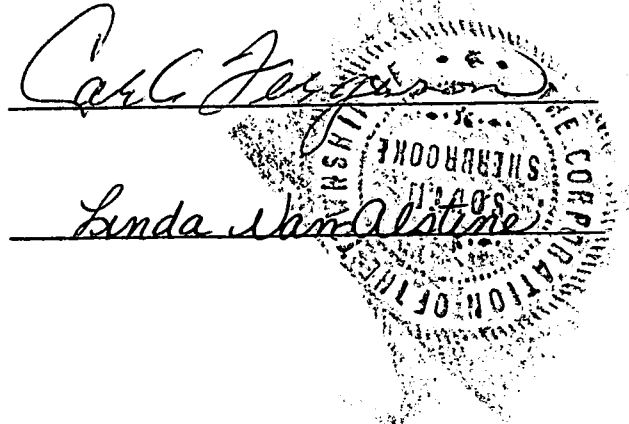 Carl Ferguson
Linda Van Alstine
THE CORPORATION OF THE TOWNSHIP
SOUTH
SHERBROOKE